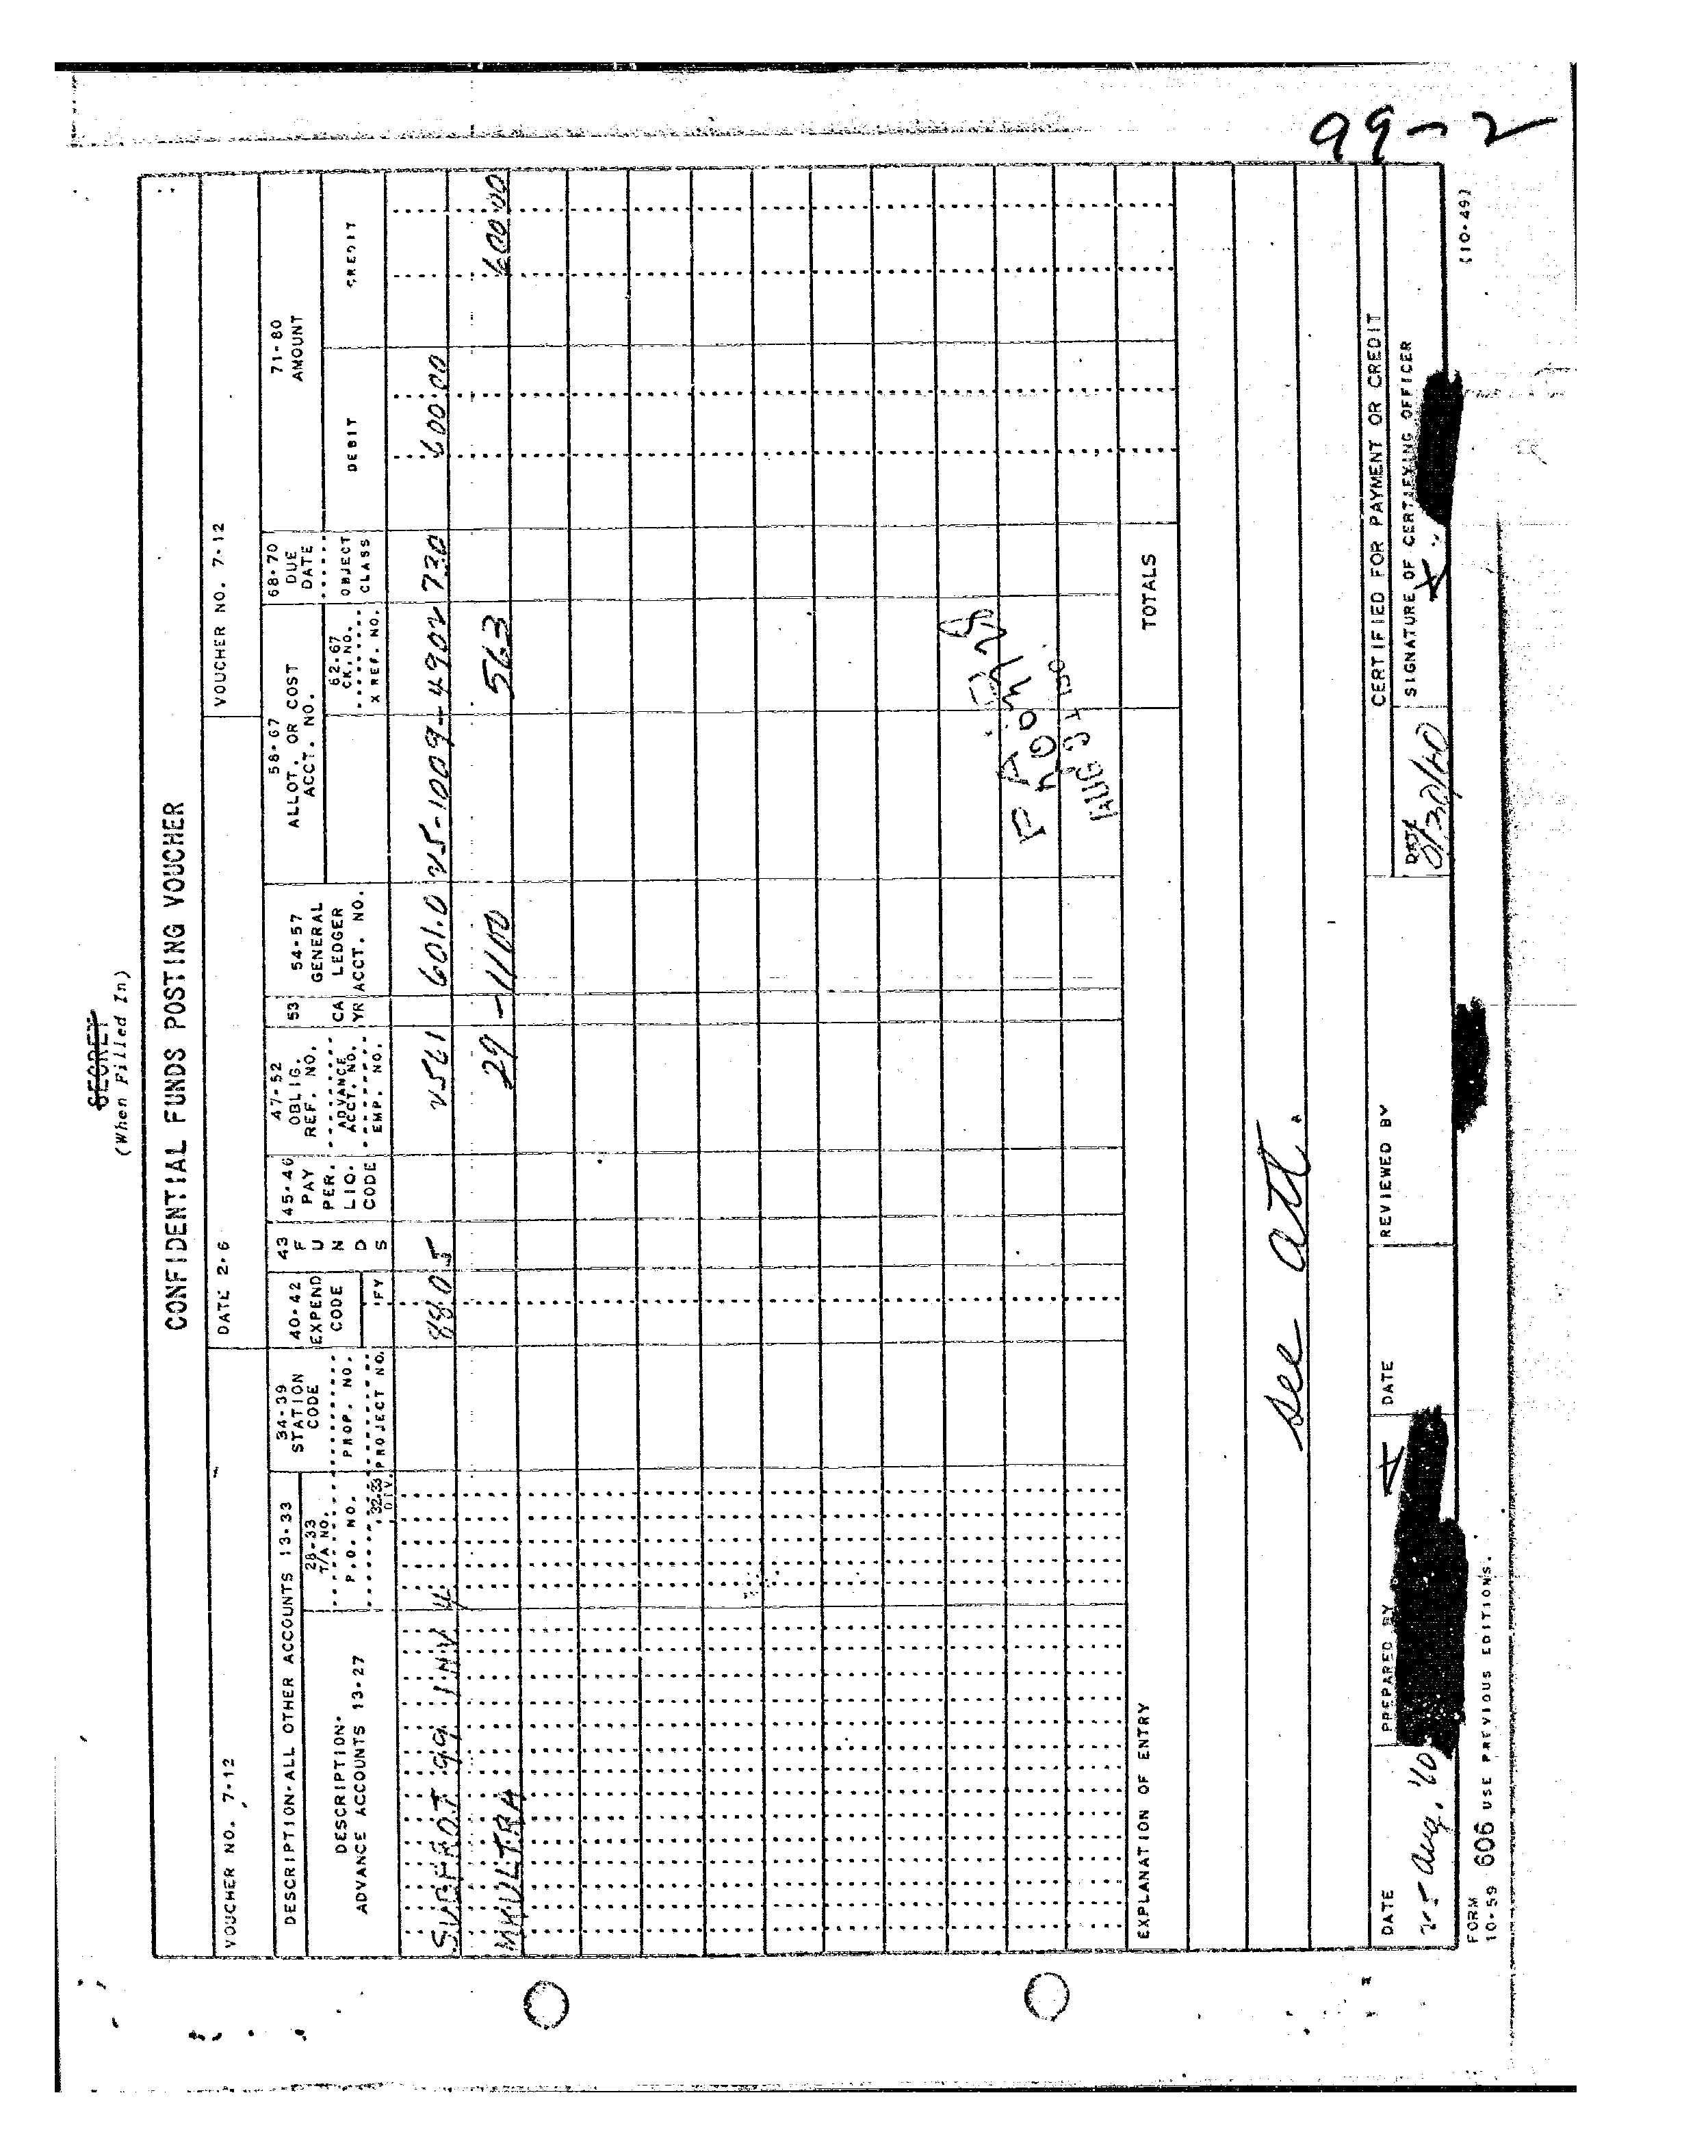 99-2
SECRET
(When Filled In)
CONFIDENTIAL FUNDS POSTING VOUCHER
VOUCHER NO. 7-12
DATE 2-6
VOUCHER NO. 7-12
DESCRIPTION-ALL OTHER ACCOUNTS 13-33
DESCRIPTION-
ADVANCE ACCOUNTS 13-27
28-33
T/A NO.
P.O. NO.
32-33
DIV.
34-39
STATION
CODE
PROP. NO.
PROJECT NO.
40-42
EXPEND
CODE
FY
43
F
U
N
D
S
45-46
PAY
PER.
LIQ.
CODE
47-52
OBLIG.
REF. NO.
ADVANCE
ACCT. NO.
EMP. NO.
53
CA
YR
54-57
GENERAL
LEDGER
ACCT. NO.
58-67
ALLOT. OR COST
ACCT. NO.
62-67
CK. NO.
X REF. NO.
68-70
DUE
DATE
OBJECT
CLASS
71-80
AMOUNT
DEBIT
CREDIT
SUBPROT 99 INV 4 601.0 730 600.00
MKULTRA 29 -1100 563 600.00
TOTALS
EXPLANATION OF ENTRY
see att.
CERTIFIED FOR PAYMENT OR CREDIT
DATE
25 Aug. '60
PREPARED BY
DATE
REVIEWED BY
DATE
SIGNATURE OF CERTIFYING OFFICER
FORM
10-59 606 USE PREVIOUS EDITIONS.
(10-49)